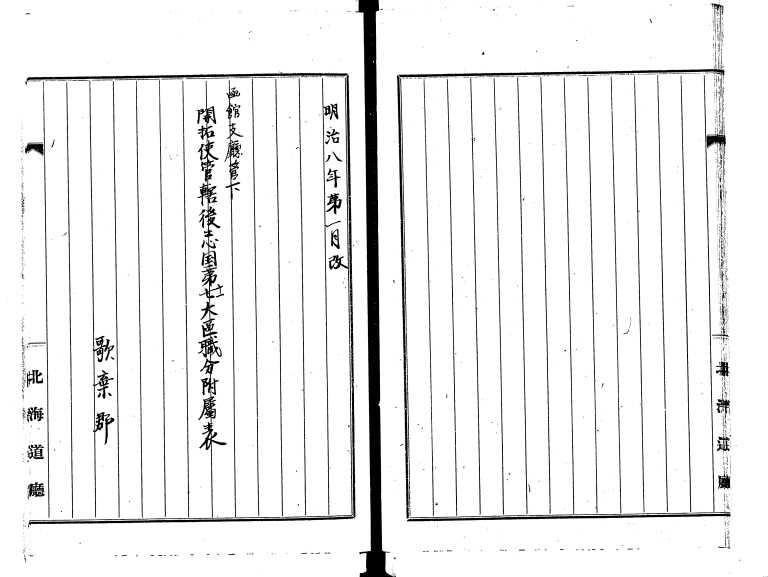 明治八年第一月改
函館支廳管下
開拓使管轄後志国第七大區職分附屬表
十二
歌棄郡
北海道廳
北海道廳